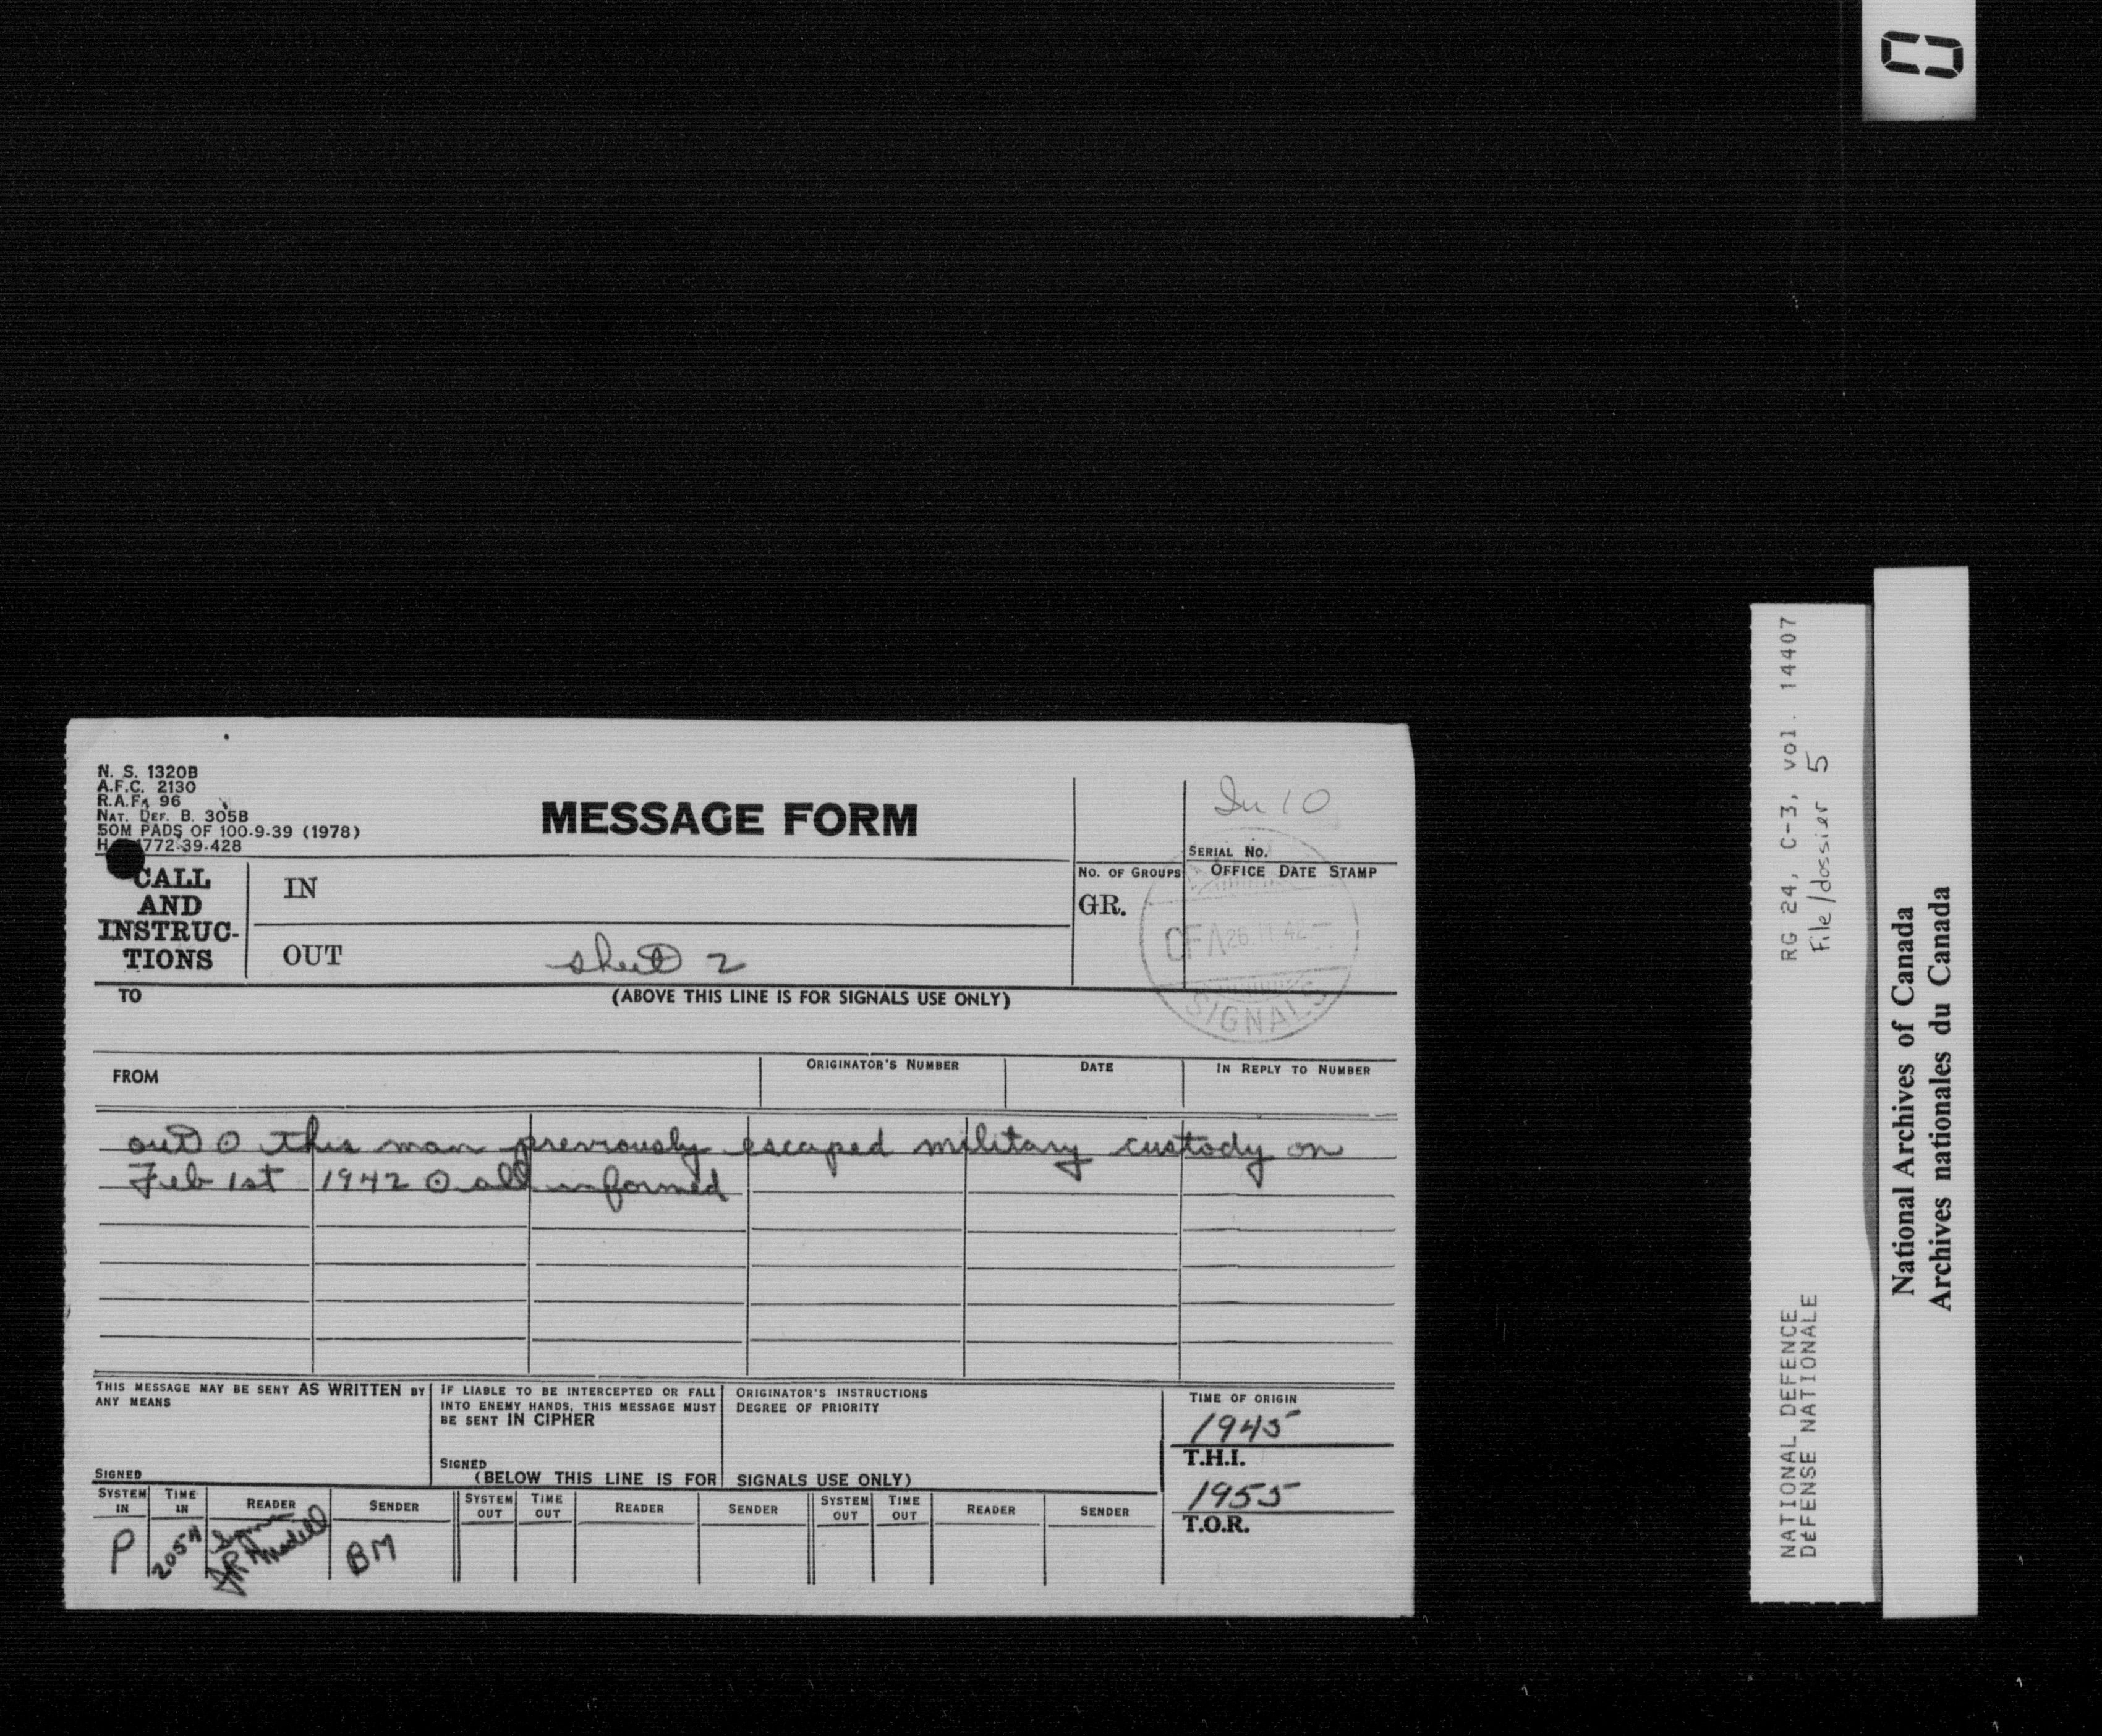 N. S. 1320B
A.F.C. 2130
R.A.F. 96
NAT. DEF. B. 305B
50M PADS OF 100-9-39 (1978)
H. 1772-39-428
MESSAGE FORM
In 10
SERIAL NO.
CALL AND INSTRUC-TIONS
IN
NO. OF GROUPS
GR.
OFFICE DATE STAMP
CFA 26.11.42
SIGNALS
OUT sheet 2
TO
(ABOVE THIS LINE IS FOR SIGNALS USE ONLY)
FROM
ORIGINATOR'S NUMBER
DATE
IN REPLY TO NUMBER
out ⊙ this man previously escaped military custody on
Feb 1st 1942 ⊙ all informed
THIS MESSAGE MAY BE SENT AS WRITTEN BY
ANY MEANS
SIGNED
IF LIABLE TO BE INTERCEPTED OR FALL
INTO ENEMY HANDS, THIS MESSAGE MUST
BE SENT IN CIPHER
SIGNED
ORIGINATOR'S INSTRUCTIONS
DEGREE OF PRIORITY
(BELOW THIS LINE IS FOR SIGNALS USE ONLY)
TIME OF ORIGIN
1945
T.H.I.
1955
T.O.R.
SYSTEM IN
TIME IN
READER
SENDER
SYSTEM OUT
TIME OUT
READER
SENDER
SYSTEM OUT
TIME OUT
READER
SENDER
P
2054
BM
RG 24, C-3, vol. 14407
File/dossier 5
NATIONAL DEFENCE
DÉFENSE NATIONALE
National Archives of Canada
Archives nationales du Canada